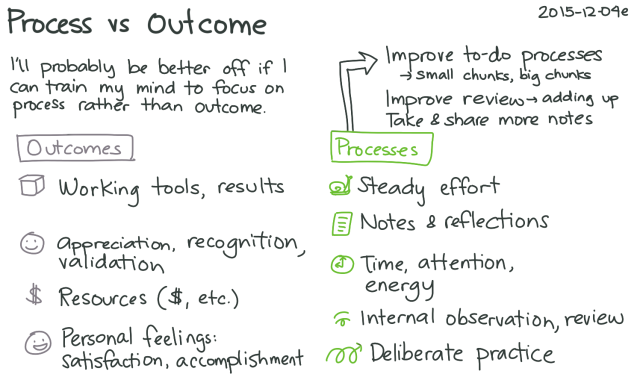 Process vs Outcome
2015-12-04e
I'll probably be better off if I
can train my mind to focus on
process rather than outcome.
Improve to-do processes
→ small chunks, big chunks
Improve review → adding up
Take & share more notes
Outcomes
Working tools, results
Appreciation, recognition,
validation
Resources ($, etc.)
Personal feelings:
satisfaction, accomplishment
Processes
Steady effort
Notes & reflections
Time, attention,
energy
Internal observation, review
Deliberate practice